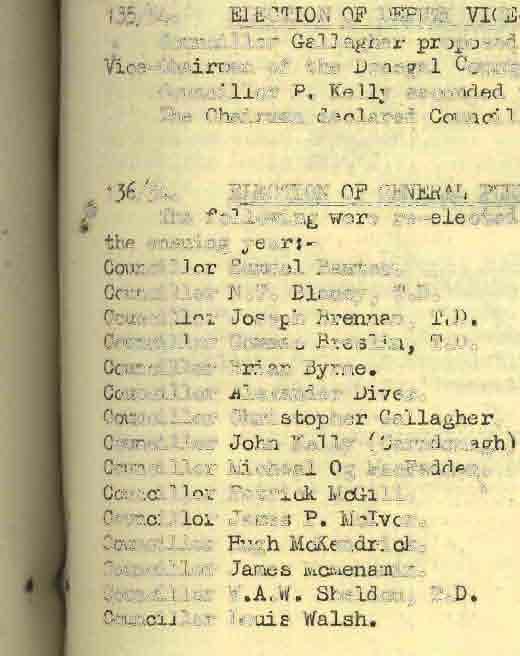 135/54. ELECTION OF DEPUTY VICE
Councillor Gallagher proposed
Vice-Chairman of the Donegal County
Councillor P. Kelly seconded
The Chairman declared Council
136/54. ELECTION OF GENERAL PUR
The following were re-elected
the ensuing year:-
Councillor Samuel
Councillor N.T. Blaney, T.D.
Councillor Joseph Brennan, T.D.
Councillor Cormac Breslin, T.D.
Councillor Brian Byrne.
Councillor Alexander Diver.
Councillor Christopher Gallagher
Councillor John Kelly
Councillor Micheal Og MacFadden.
Councillor Patrick McGill.
Councillor James P. McIvor.
Councillor Hugh McKendrick.
Councillor James McMenamin.
Councillor W.A.W. Sheldon, T.D.
Councillor Louis Walsh.